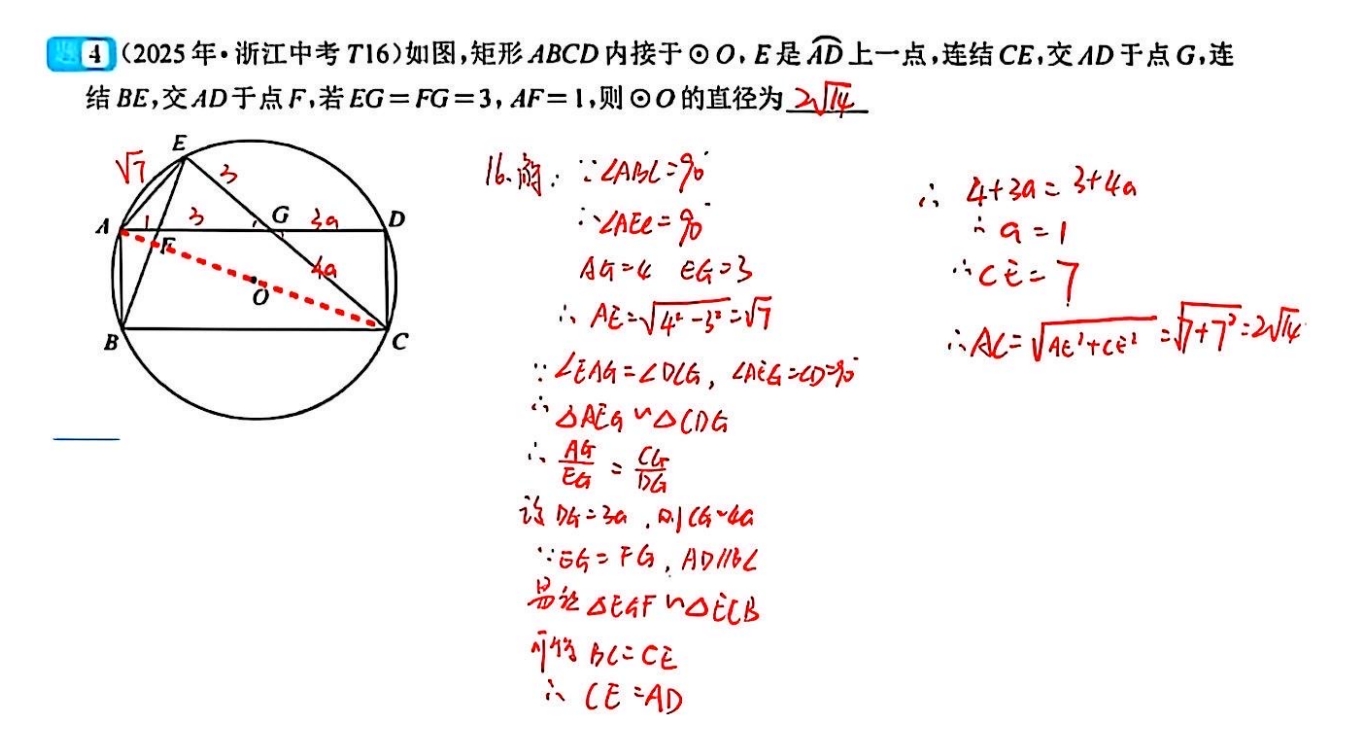 题4(2025年·浙江中考T16)如图,矩形ABCD内接于⊙O,E是⌒AD上一点,连结CE,交AD于点G,连
结BE,交AD于点F,若EG=FG=3,AF=1,则⊙O的直径为2√14
E
√7
3
A
1
3
G
3a
D
F
4a
O
B
C
16.解:∵∠ABC=90°
∴∠AEC=90°
AG=4 EG=3
∴AE=√(4²-3²)=√7
∵∠EAG=∠DCG,∠AEG=∠D=90°
∴△AEG∽△CDG
∴AG/EG=CG/DG
设DG=3a,则CG=4a
∵EG=FG,AD∥BC
易证△EGF∽△ECB
可得BC=CE
∴CE=AD
∴4+3a=3+4a
∴a=1
∴CE=7
∴AC=√(AE²+CE²)=√(7+7²)=2√14